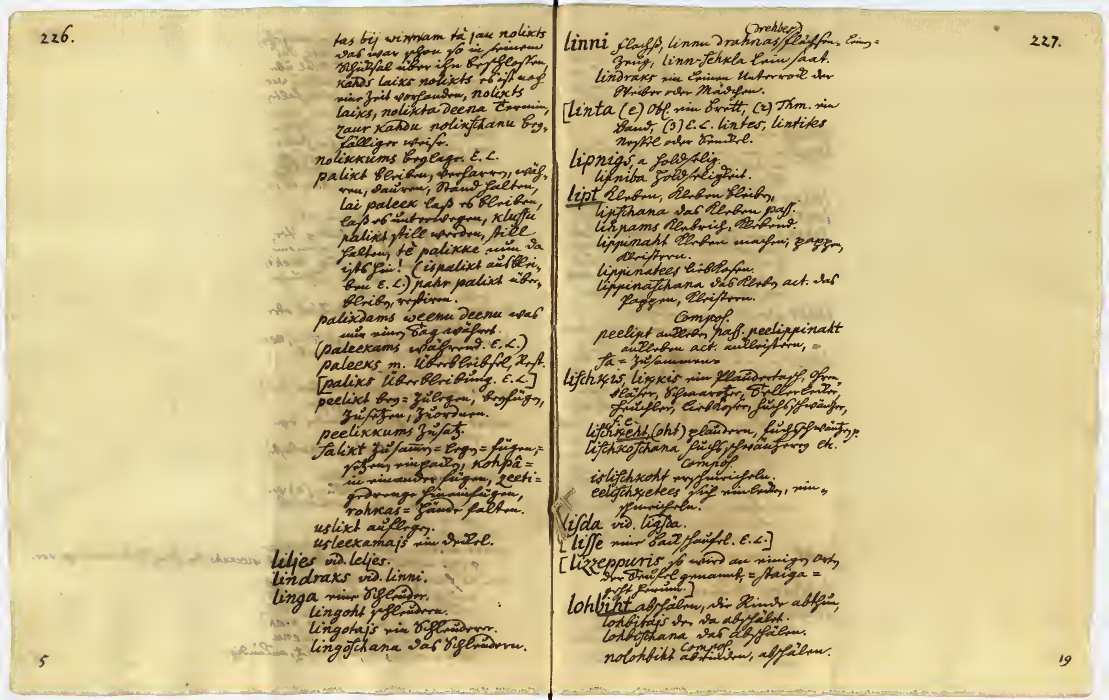 226.
tas bij winnam tà jau nolikts
das war schon so in seinem
Schicksal über ihn beschlossen,
kahds laiks nolikts es ist noch
eine Zeit vorhanden, nolikts
laiks, nolikta deena Termin,
zaur kahdu nolikschanu beyfälliger
weise.
nolikkums beylage. E. L.
palikt bleiben, verharren, wäh-
ren, dauren, Stand halten,
lai paleek laß es bleiben,
laß es unterwegen, klussu
palikt still werden, still
halten, tè palikke nun da
ists hin! (ispalikt ausblei-
ben E. L.) pahr palikt über-
bleiben, restiren.
palikdams weenu deenu was
nur einen Tag währet.
(paleekams während. E. L.)
paleeks m. Überbleibsel, Rest.
[paliks Überbleibung. E. L.]
peelikt bey= zulegen, beyfügen,
zusetzen, zuordnen.
peelikkums Zusatz.
salikt zusamen= legen= fügen,=
setzen, einpacken, kohpâ=
in einander fügen, zeeti=
gedrenge hineinfügen,
rohkas= Hände falten.
uslikt auflegen.
usleekamajs ein Deckel.
liljes vid. leljes.
lindraks vid. linni.
linga eine Schleuder.
lingoht schleudern.
lingotajs ein Schleuderer.
lingoschana das Schleudern.
5
227.
(drehbes)
linni Flachß, linnu drahnas Flächsen= Lein=
Zeug, linn-sehkla Leinsaat.
lindraks ein Leinen Unterrock der
Weiber oder Mädchen.
[linta (e) Obl. ein Brett, (2) Thm. ein
Band, (3) E. L. lintes, lintites
Nestel oder Senckel.
lipnigs, a holdselig.
lipniba Holdseligkeit.
lipt kleben, kleben bleiben,
lipschana das Kleben pass.
lipams klebrich, klebend.
lippinaht kleben machen, pappen,
kleistern.
lippinatees liebkosen.
lippinaschana das Kleben act. das
Pappen, Kleistern.
Compos.
peelipt ankleben pass. peelippinaht
ankleben act. ankleistern, =
sa= zusammen=
lischkis, lixkis ein Plaudertasch, Ohren-
bläser, Schmarotzer, Tellerlecker,
Heuchler, Liebkoser, Fuchsschwäntzer,
lischkeht, (oht) plaudern, fuchsschwäntzen.
lischkoschana Fuchsschwäntzerey etc.
Compos.
islischkoht erschmeicheln.
eelischketees sich einlecken, ein-
schmeicheln.
lisda vid. ligsda.
[lisse eine Backschaufel. E. L.]
[lizzeppuris so wird an einigen Orten
der Teufel genannt, =staiga=
geht herum.]
lohbiht abschälen, die Rinde abthun,
lohbitajs der da abschält.
lohbischana das abschälen.
Compos.
nolohbiht abrinden, abschälen.
19